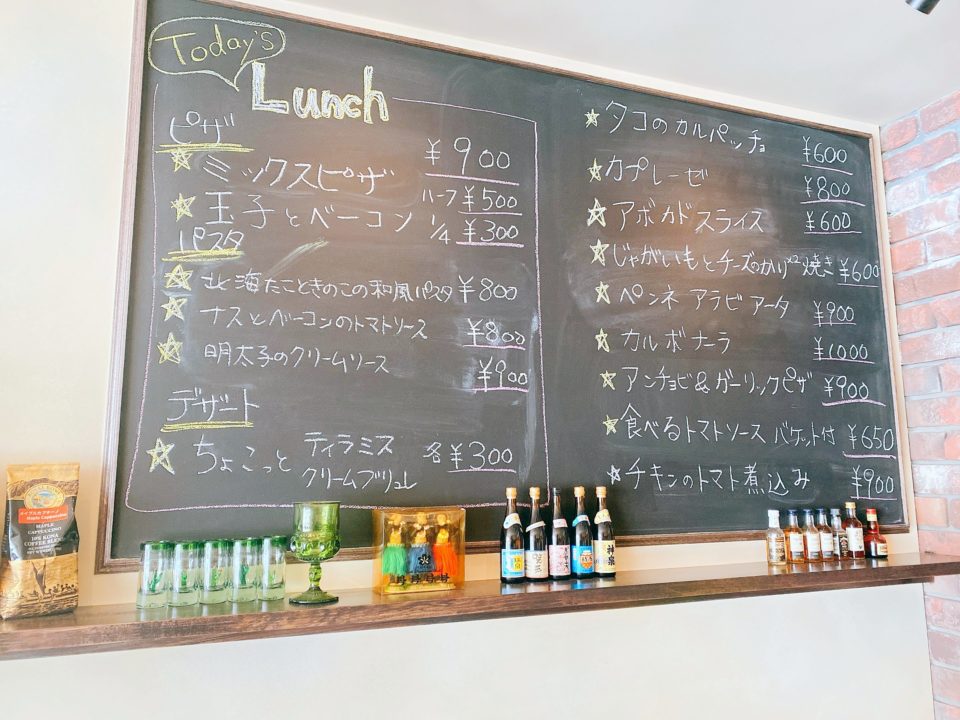 Today's
Lunch
ピザ
☆ミックスピザ ¥900
ハーフ ¥500
☆玉子とベーコン 1/4 ¥300
パスタ
☆北海たこときのこの和風パスタ ¥800
☆ナスとベーコンのトマトソース ¥800
☆明太子のクリームソース ¥900
デザート
☆ちょこっと ティラミス
クリームブリュレ 各¥300
☆タコのカルパッチョ ¥600
☆カプレーゼ ¥800
☆アボカドスライス ¥600
☆じゃがいもとチーズのカリカリ焼き ¥600
☆ペンネ アラビアータ ¥900
☆カルボナーラ ¥1000
☆アンチョビ&ガーリックピザ ¥900
☆食べるトマトソース バゲット付 ¥650
☆チキンのトマト煮込み ¥900
メイプルカプチーノ
Maple Cappuccino
MAPLE
CAPPUCCINO
10% KONA
COFFEE BLEND
神泉